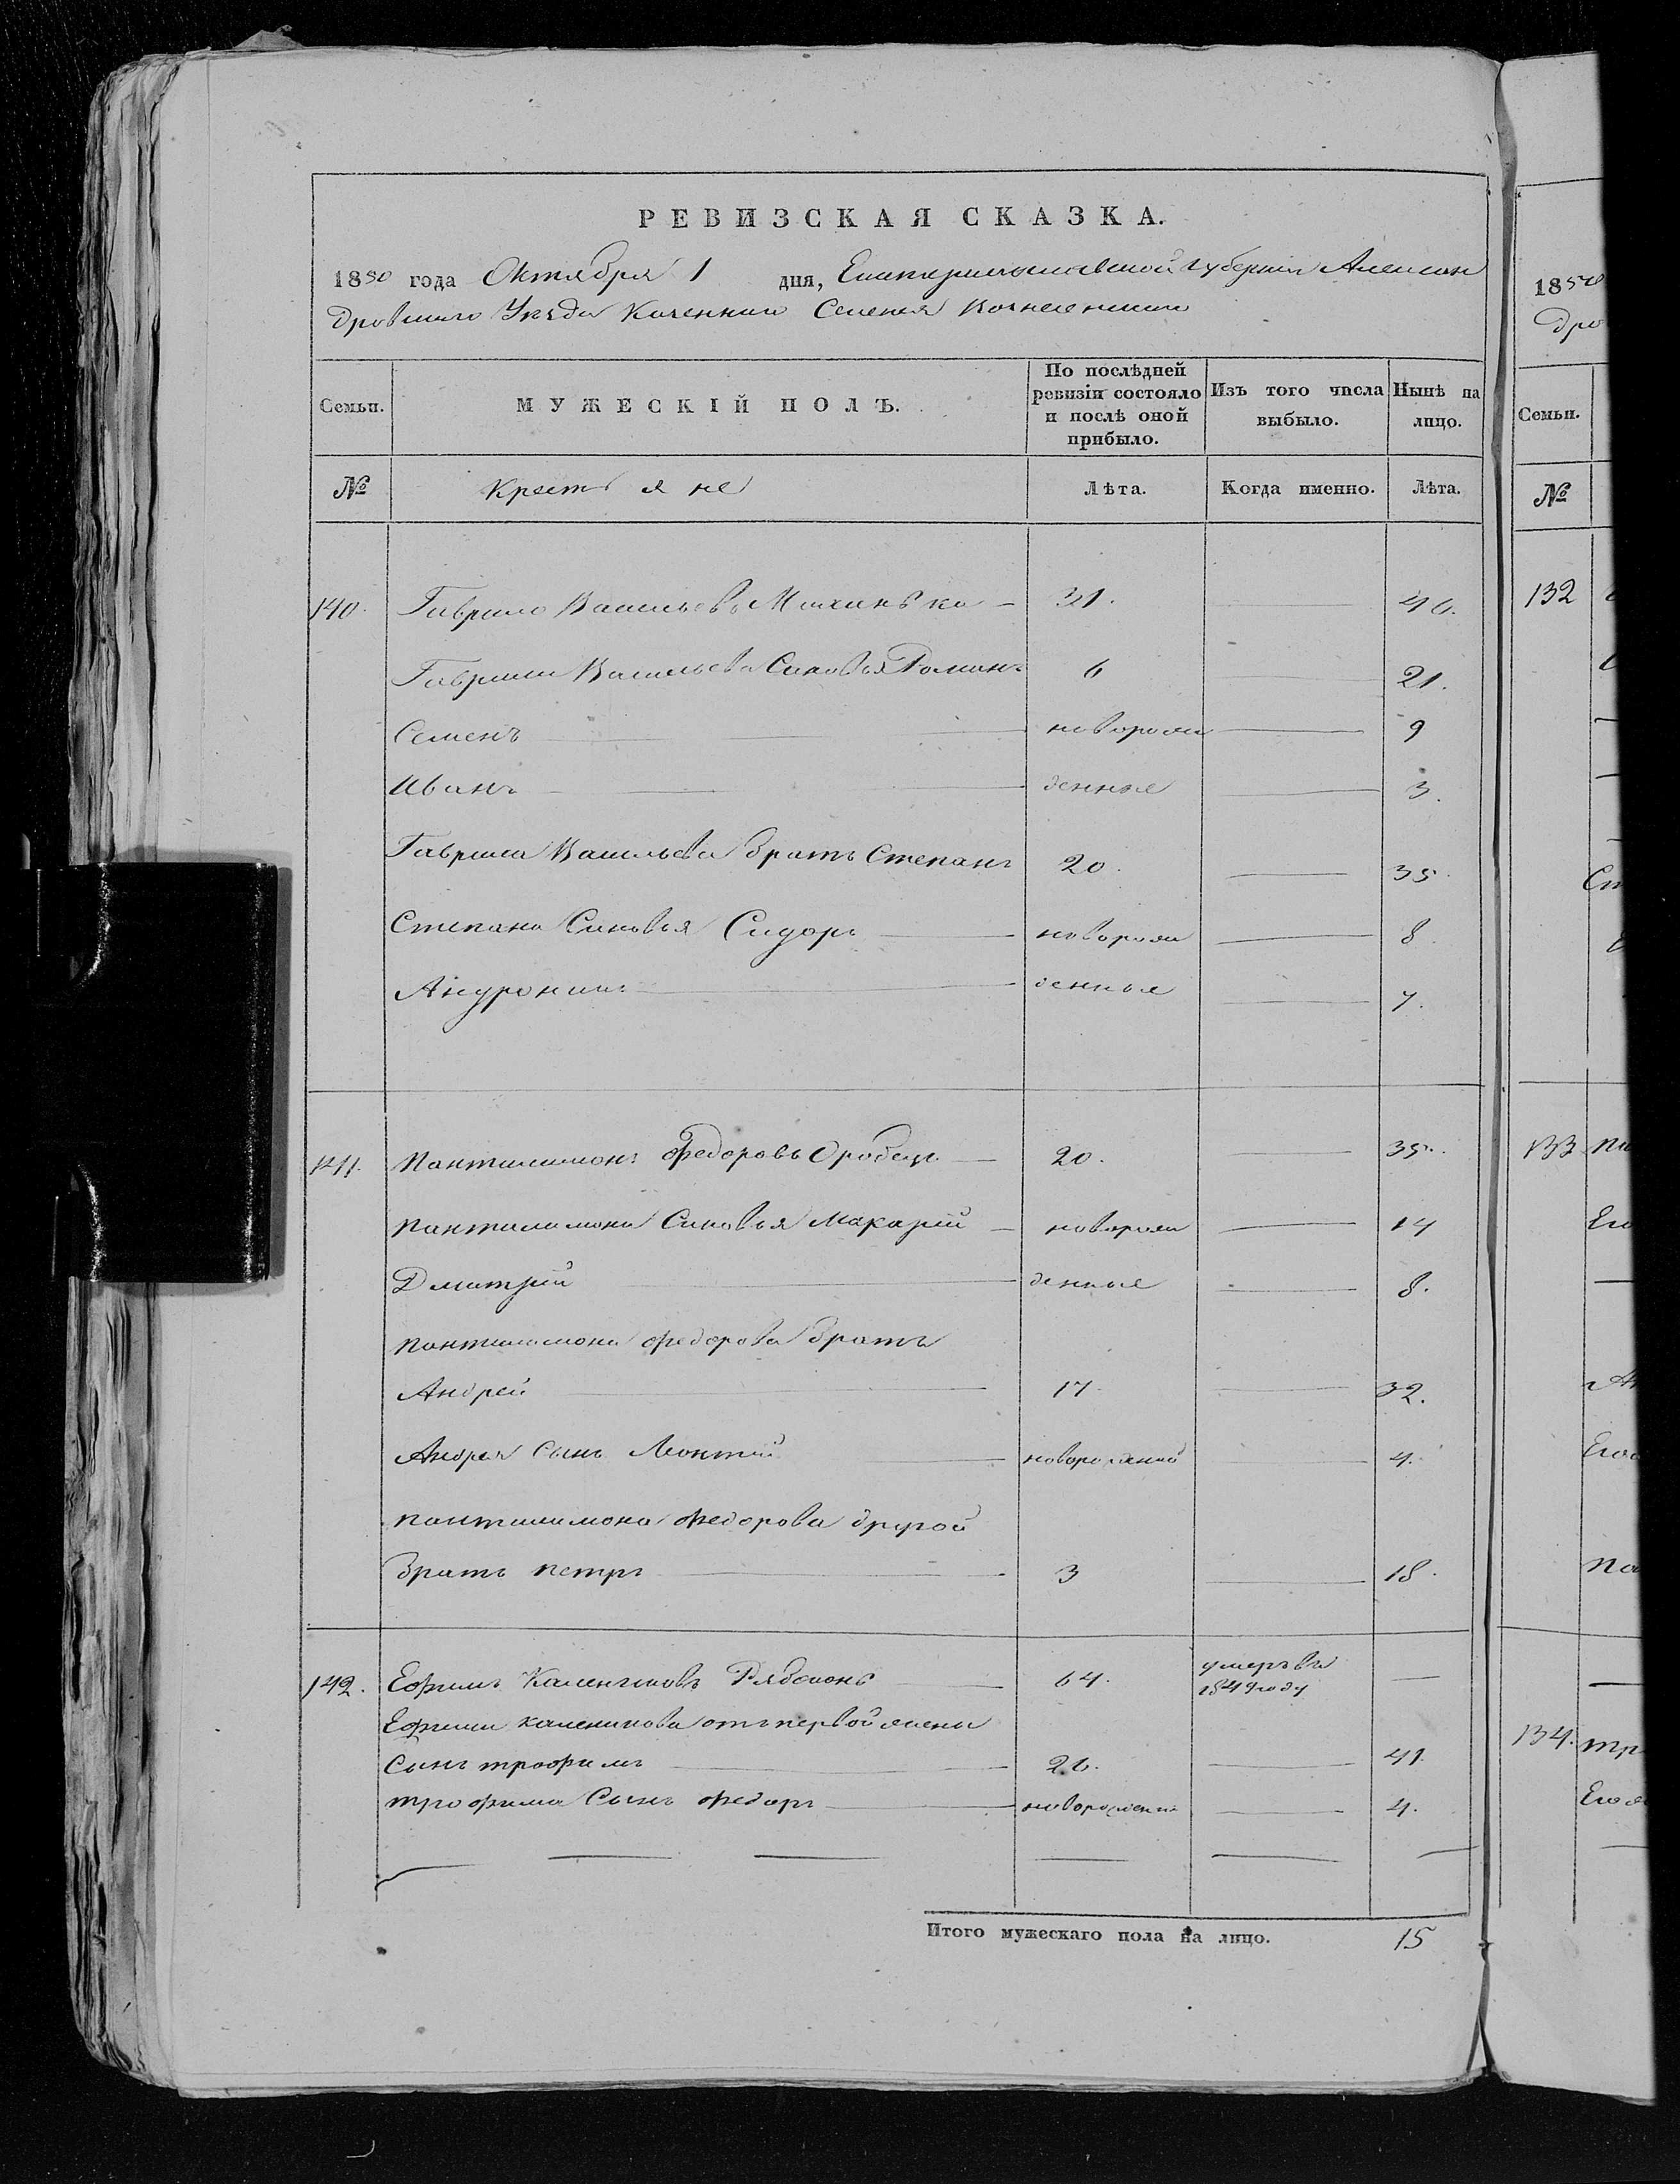 РЕВИЗСКАЯ СКАЗКА.
1850 года Октября 1 дня, Екатеринославской Губернии Александ
дровскаго Уезда Казеннаго Селения Вознесенки
Семьи. МУЖЕСКІЙ ПОЛЪ. По послѣдней ревизіи состояло и послѣ оной прибыло. Изъ того числа выбыло. Нынѣ на лицо.
№ Крестьяне Лѣта. Когда именно. Лѣта.
140. Гаврило Васильевъ 31. 46.
Гаврила Васильева Сыновья Романъ 6 21.
Семенъ новорож 9
Иванъ денные 3.
Гаврила Васильева братъ Степанъ 20. 35.
Степана Сыновья Сидоръ новорож 8.
Андроникъ денные 7.
141. Пантилимонъ Федоровъ 20. 35.
Пантилимона Сыновья Макарій новорож 14
Дмитрій денные 8.
Пантилимона Федорова братъ
Андрей 17. 32.
Андрея Сынъ Леонтій новорожденный 4.
Пантилимона Федорова другой
братъ Петръ 3 18.
142. Ефимъ Калениковъ 64. умеръ въ 1849 году
Ефима Каленикова отъ первой жены
Сынъ Трофимъ 26. 41.
Трофима Сынъ Федоръ новорожденный 4.
Итого мужескаго пола на лицо. 15
1850
дро
Семьи.
№
132
133
134.